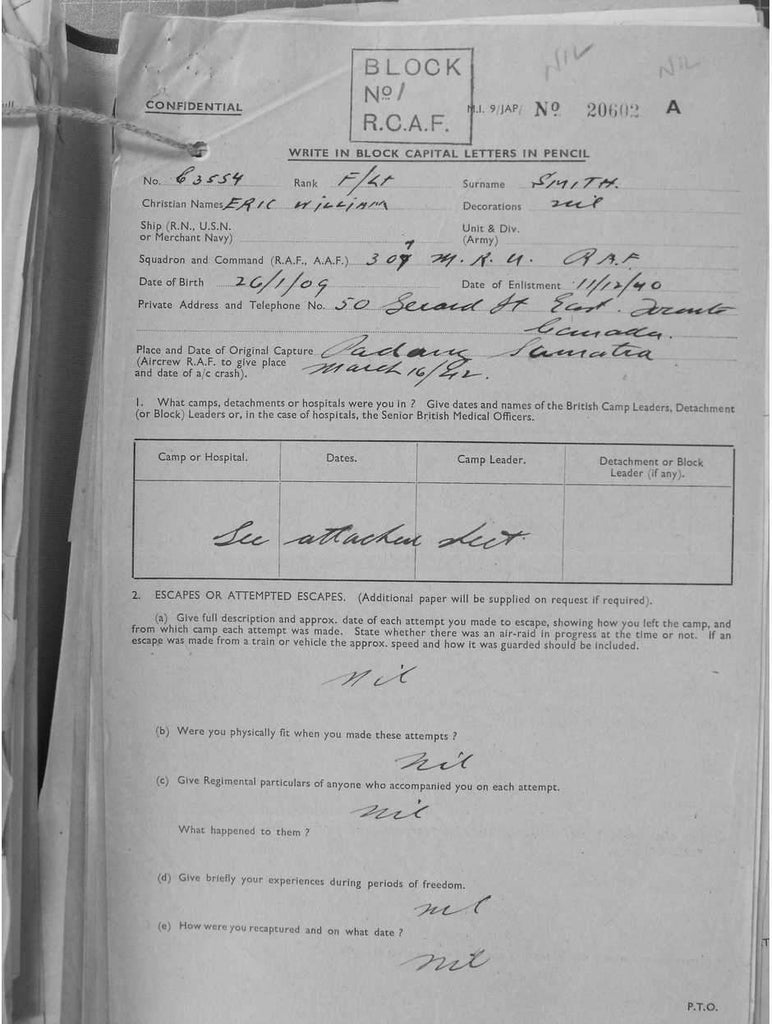 NIL NIL
BLOCK
No 1
R.C.A.F.
CONFIDENTIAL
M.I. 9/JAP/ No 20602 A
WRITE IN BLOCK CAPITAL LETTERS IN PENCIL
No. C3554 Rank F/Lt Surname SMITH.
Christian Names ERIC WILLIAM Decorations nil
Ship (R.N., U.S.N.
or Merchant Navy)
Unit & Div.
(Army)
Squadron and Command (R.A.F., A.A.F.) 307 M.R.U. RAF
Date of Birth 26/1/09 Date of Enlistment 11/12/40
Private Address and Telephone No. 50 Gerard St East. Toronto
Canada.
Place and Date of Original Capture Padang Sumatra
(Aircrew R.A.F. to give place
and date of a/c crash). March 16/42.
1. What camps, detachments or hospitals were you in ? Give dates and names of the British Camp Leaders, Detachment
(or Block) Leaders or, in the case of hospitals, the Senior British Medical Officers.
Camp or Hospital. Dates. Camp Leader. Detachment or Block
Leader (if any).
See attached sheet
2. ESCAPES OR ATTEMPTED ESCAPES. (Additional paper will be supplied on request if required).
(a) Give full description and approx. date of each attempt you made to escape, showing how you left the camp, and
from which camp each attempt was made. State whether there was an air-raid in progress at the time or not. If an
escape was made from a train or vehicle the approx. speed and how it was guarded should be included.
Nil
(b) Were you physically fit when you made these attempts ?
Nil
(c) Give Regimental particulars of anyone who accompanied you on each attempt.
nil
What happened to them ?
(d) Give briefly your experiences during periods of freedom.
nil
(e) How were you recaptured and on what date ?
nil
P.T.O.